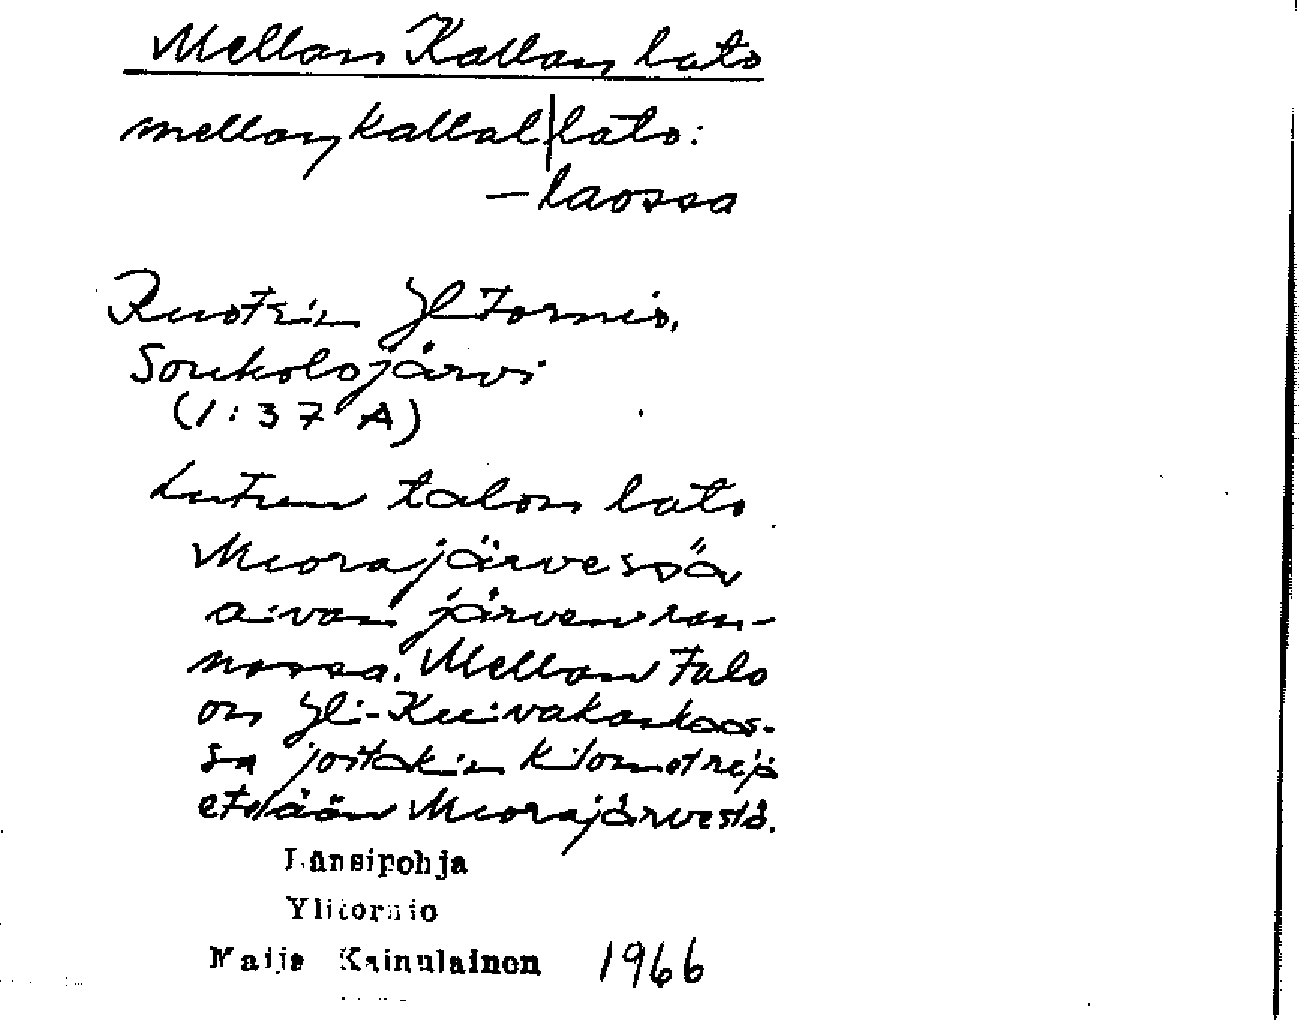 Mellan Kallan lato
mellaŋ kallal|lato:
– laossa
Ruotsin Ylitornio,
Soukolojärvi
(1:37 A)
talon lato
Muorajärvessä
aivan järven ran-
nassa. Mellan talo
on Yli-Kuivakankaas-
sa joitakin kilometrejä
etäään Muorajärvestä.
Länsipohja
Ylitornio
Maija Kainulainen 1966